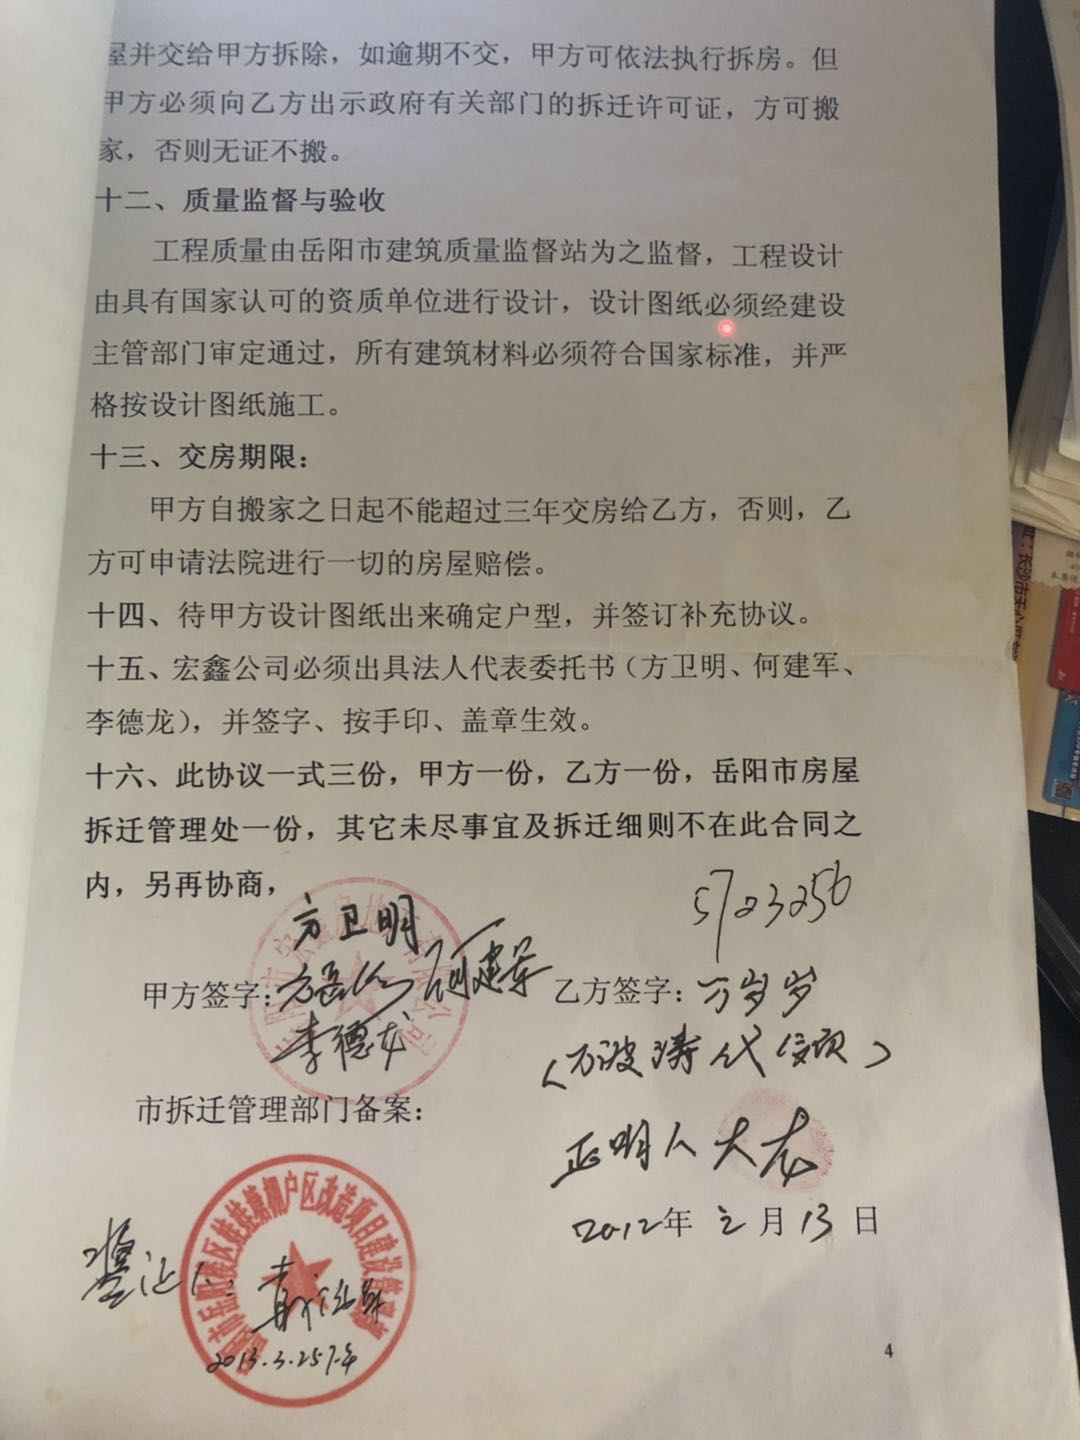 屋并交给甲方拆除，如逾期不交，甲方可依法执行拆房。但
甲方必须向乙方出示政府有关部门的拆迁许可证，方可搬
家，否则无证不搬。
十二、质量监督与验收
工程质量由岳阳市建筑质量监督站为之监督，工程设计
由具有国家认可的资质单位进行设计，设计图纸必须经建设
主管部门审定通过，所有建筑材料必须符合国家标准，并严
格按设计图纸施工。
十三、交房期限：
甲方自搬家之日起不能超过三年交房给乙方，否则，乙
方可申请法院进行一切的房屋赔偿。
十四、待甲方设计图纸出来确定户型，并签订补充协议。
十五、宏鑫公司必须出具法人代表委托书（方卫明、何建军、
李德龙），并签字、按手印、盖章生效。
十六、此协议一式三份，甲方一份，乙方一份，岳阳市房屋
拆迁管理处一份，其它未尽事宜及拆迁细则不在此合同之
内，另再协商，
5723256
方卫明
甲方签字：何建军
李德龙
乙方签字：万岁岁
（万波涛代
市拆迁管理部门备案：
证明人大龙
2012年 月13日
鉴证人：
2013.3.25
4